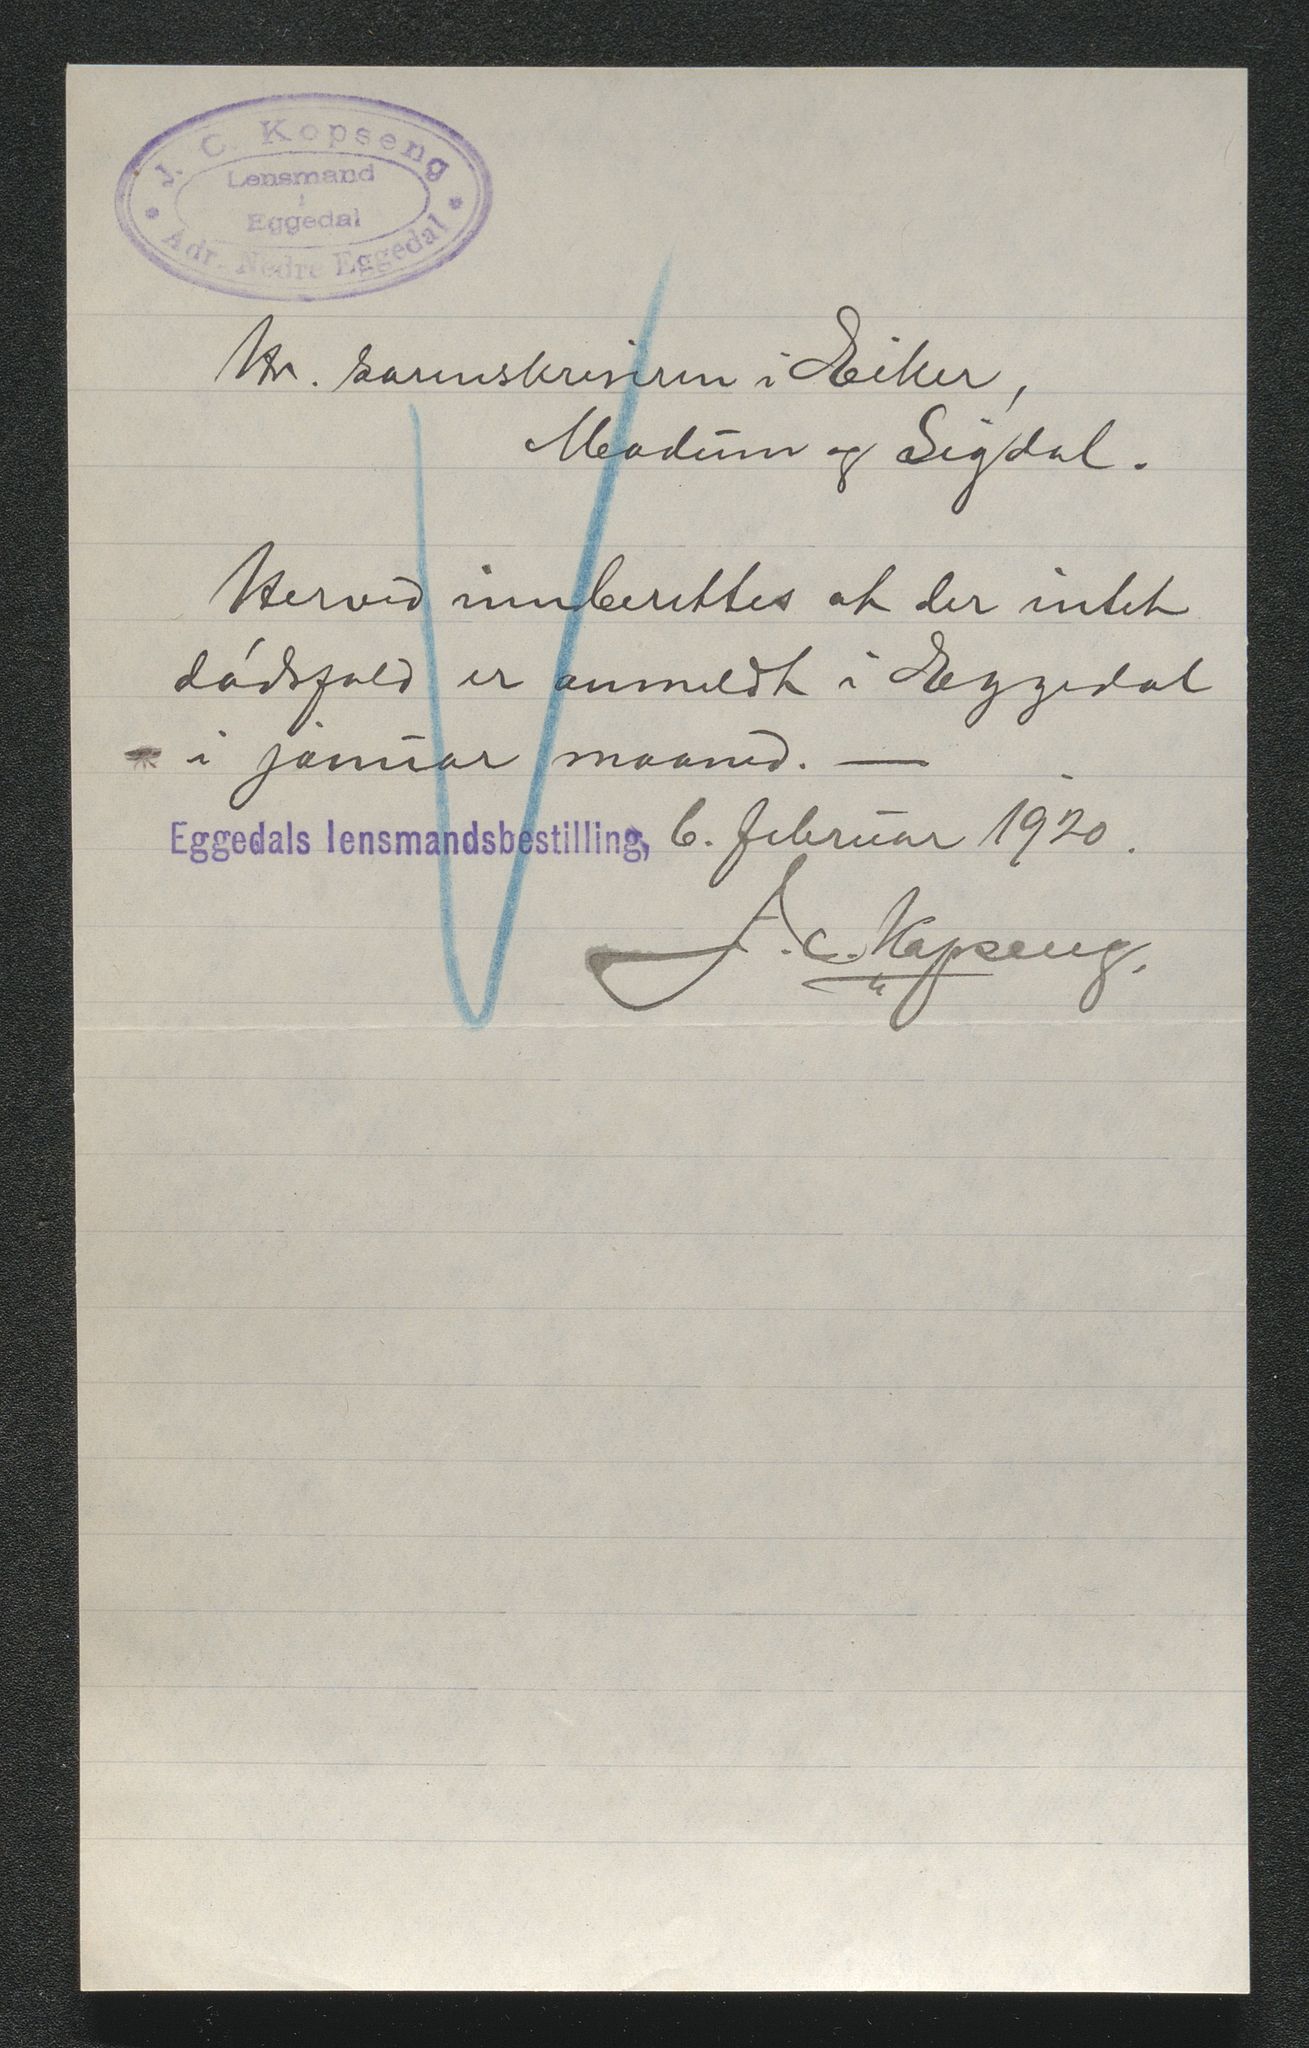 J. C. Kopseng
Lensmand
i
Eggedal
Adr. Nedre Eggedal
Hr. sorenskriveren i Eiker,
Modum og Sigdal.
Herved innberettes at der intet
dødsfald er anmeldt i Eggedal
i januar maaned. —
Eggedals lensmandsbestilling, 6. februar 1920.
J. C. Kopseng.